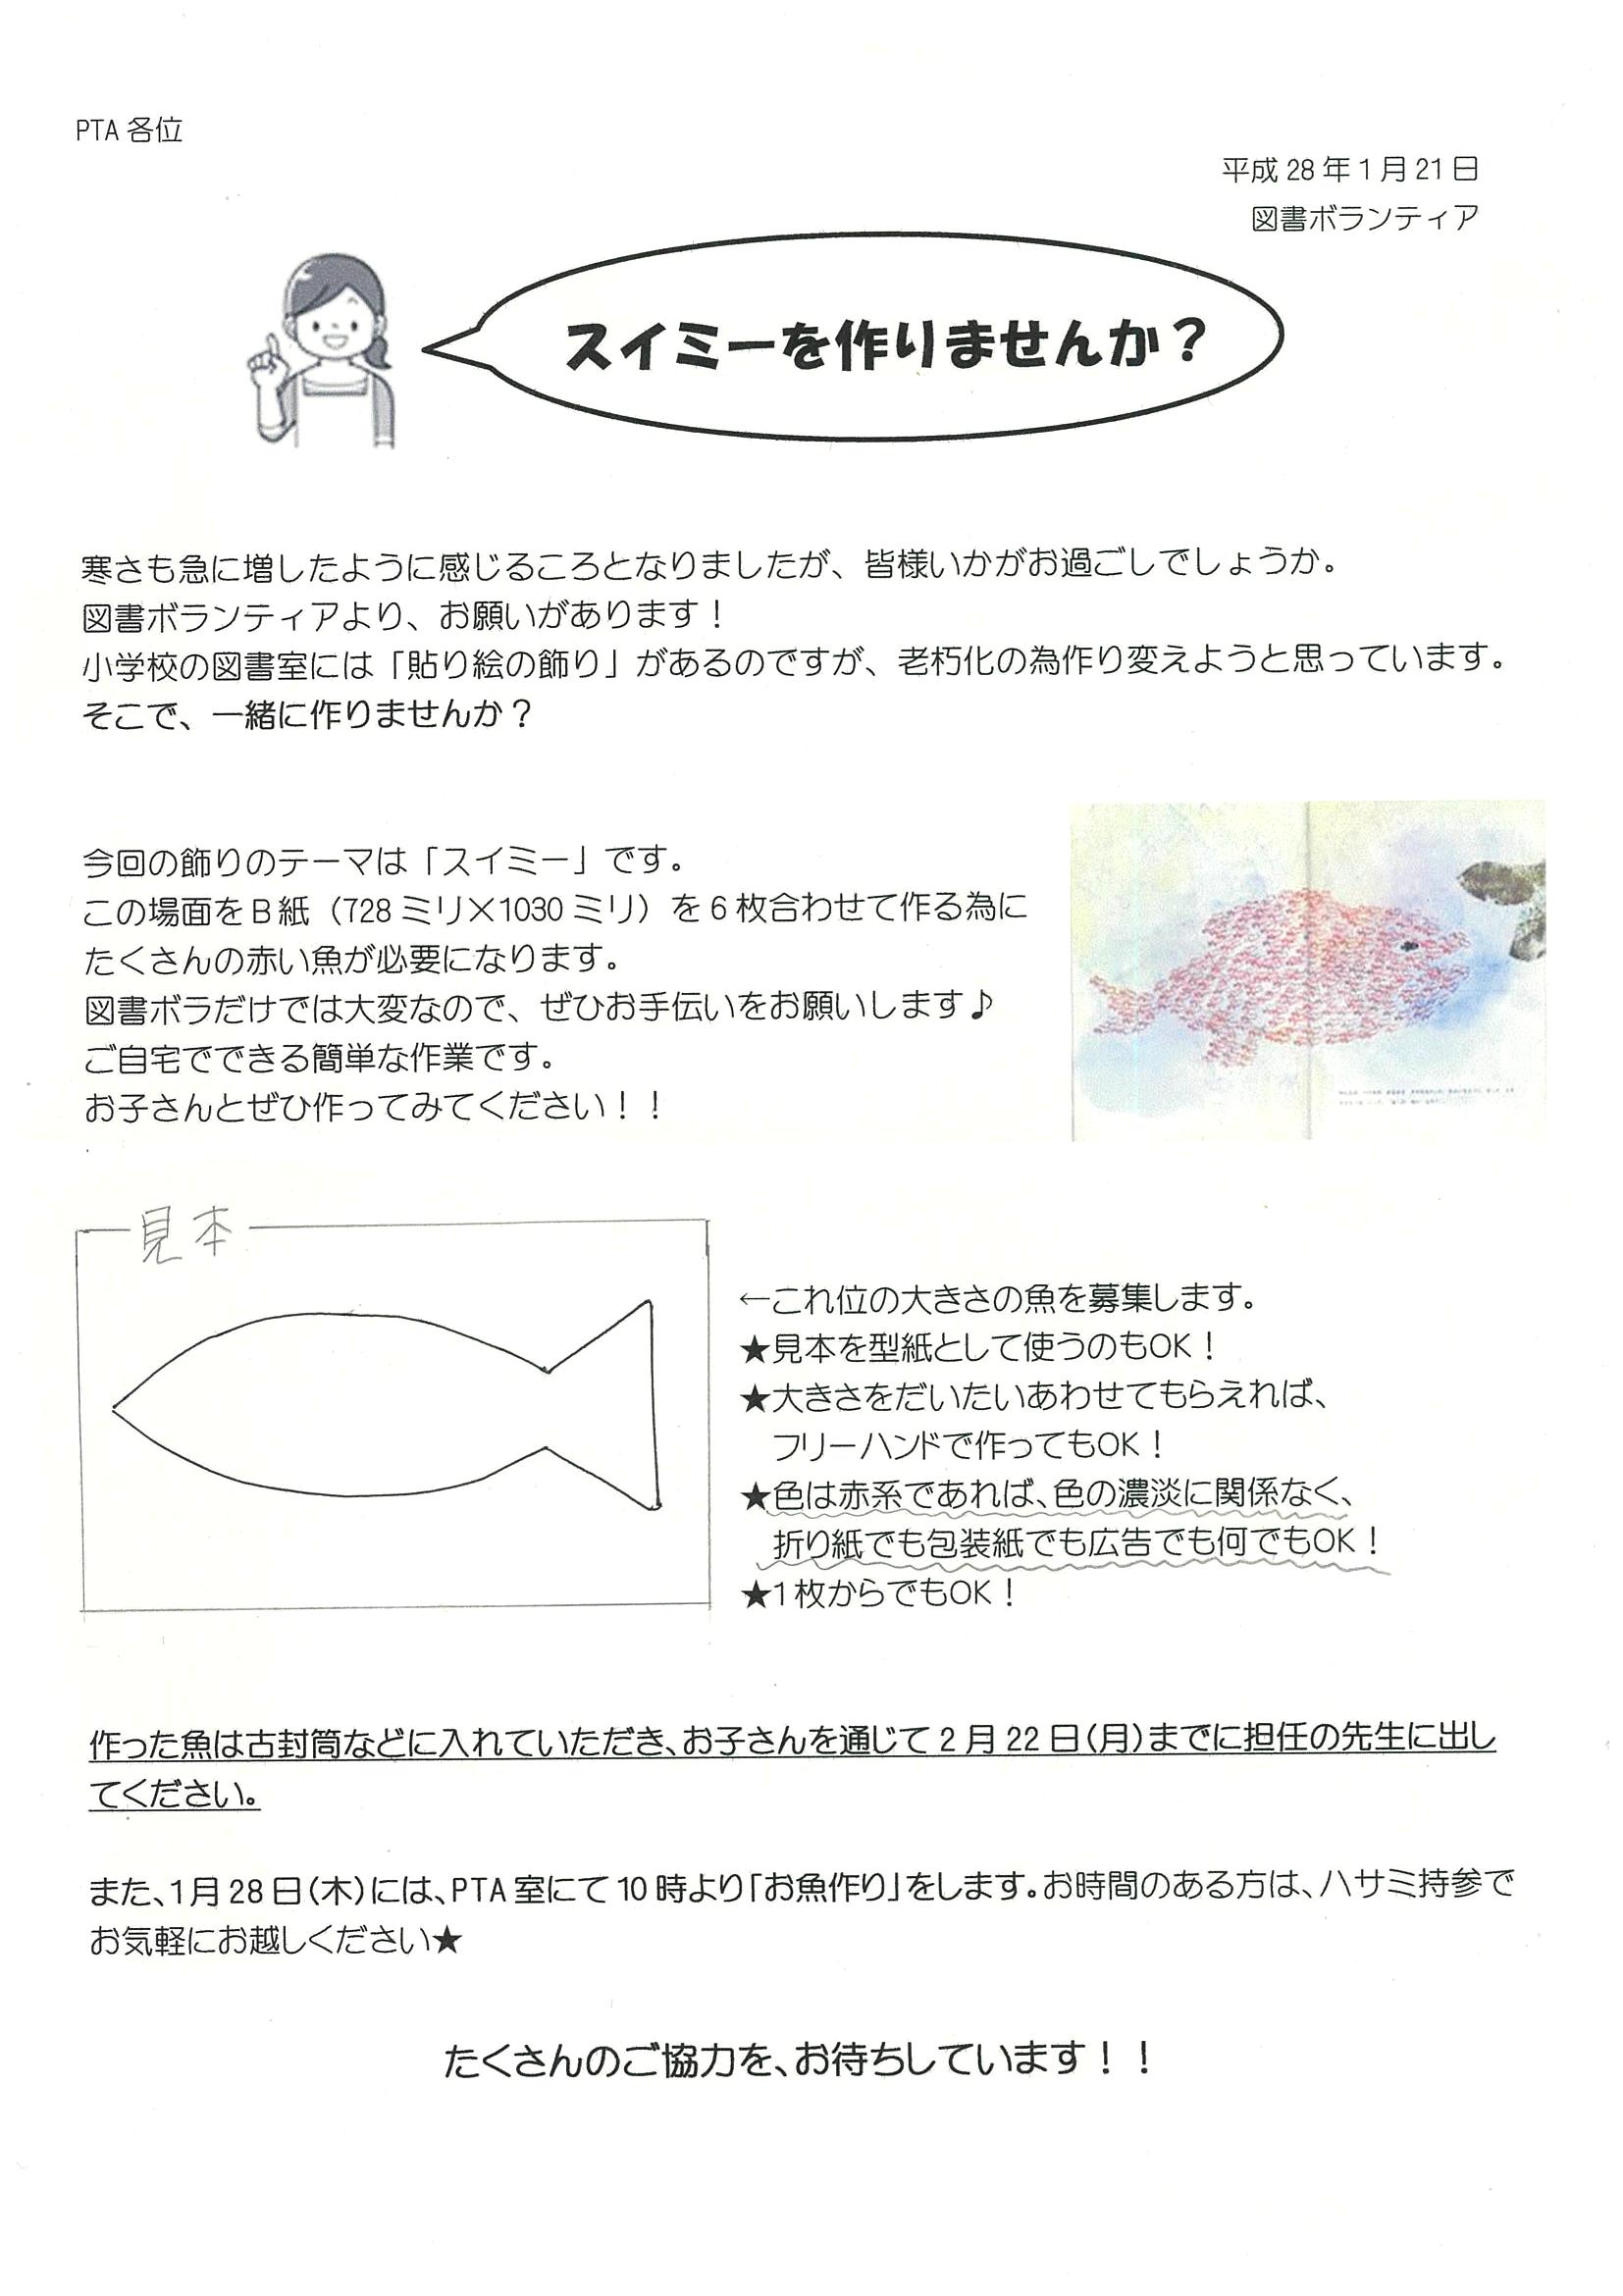 PTA 各位
平成 28 年 1 月 21 日
図書ボランティア
スイミーを作りませんか？
寒さも急に増したように感じるころとなりましたが、皆様いかがお過ごしでしょうか。
図書ボランティアより、お願いがあります！
小学校の図書室には「貼り絵の飾り」があるのですが、老朽化の為作り変えようと思っています。
そこで、一緒に作りませんか？
今回の飾りのテーマは「スイミー」です。
この場面をＢ紙（728 ミリ×1030 ミリ）を 6 枚合わせて作る為に
たくさんの赤い魚が必要になります。
図書ボラだけでは大変なので、ぜひお手伝いをお願いします♪
ご自宅でできる簡単な作業です。
お子さんとぜひ作ってみてください！！
見本
←これ位の大きさの魚を募集します。
★見本を型紙として使うのもOK！
★大きさをだいたいあわせてもらえれば、
フリーハンドで作ってもOK！
★色は赤系であれば、色の濃淡に関係なく、
折り紙でも包装紙でも広告でも何でもOK！
★1 枚からでもOK！
作った魚は古封筒などに入れていただき、お子さんを通じて 2 月 22 日（月）までに担任の先生に出し
てください。
また、1月 28 日（木）には、PTA 室にて 10 時より「お魚作り」をします。お時間のある方は、ハサミ持参で
お気軽にお越しください★
たくさんのご協力を、お待ちしています！！